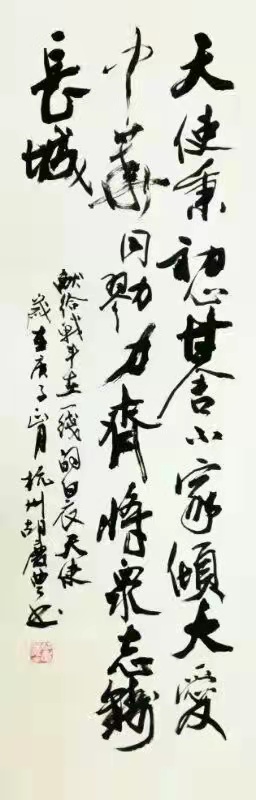 天使秉初心甘舍小家倾大爱
中华同勠力齐将众志铸
长城
献给战斗在一线的白衣天使
岁在庚子正月杭州胡庆